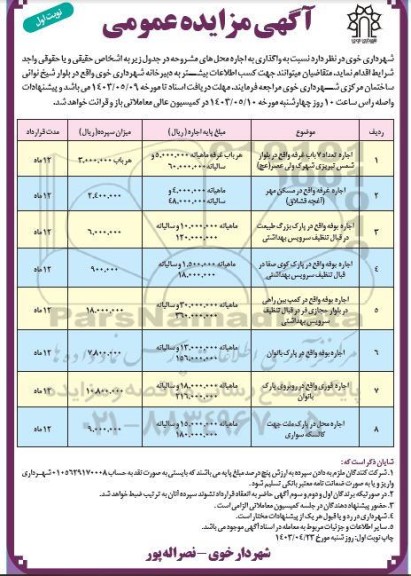 آگهی مزایده عمومی
نوبت اول
شهرداری خوی در نظر دارد نسبت به واگذاری به اجاره محل های مشروحه در جدول زیر به اشخاص حقیقی و یا حقوقی واجد
شرایط اقدام نماید. متقاضیان میتوانند جهت کسب اطلاعات بیشتر به دبیرخانه شهرداری خوی واقع در بلوار شیخ نوائی
ساختمان مرکزی شهرداری خوی مراجعه فرمایند. مهلت دریافت اسناد تا مورخه ۱۴۰۳/۰۵/۰۹ می باشد و پیشنهادات
واصله راس ساعت ۱۰ روز چهارشنبه مورخه ۱۴۰۳/۰۵/۱۰ در کمیسیون عالی معاملاتی باز و قرائت خواهد شد.
ردیف موضوع مبلغ پایه اجاره (ریال) میزان سپرده (ریال) مدت قرارداد
۱ اجاره تعداد ۷ باب غرفه واقع در بلوار شمس تبریزی شهرک ولی عصر (عج) هر باب غرفه ماهیانه ۵,۰۰۰,۰۰۰ و سالیانه ۶۰,۰۰۰,۰۰۰ هر باب ۳,۰۰۰,۰۰۰ ۱۲ ماه
۲ اجاره غرفه واقع در مسکن مهر (آغچه قشلاق) ماهیانه ۴,۰۰۰,۰۰۰ و سالیانه ۴۸,۰۰۰,۰۰۰ ۲,۴۰۰,۰۰۰ ۱۲ ماه
۳ اجاره بوفه واقع در پارک بزرگ طبیعت در قبال تنظیف سرویس بهداشتی ماهیانه ۱۰,۰۰۰,۰۰۰ و سالیانه ۱۲۰,۰۰۰,۰۰۰ ۶,۰۰۰,۰۰۰ ۱۲ ماه
۴ اجاره بوفه واقع در پارک کوی صفا در قبال تنظیف سرویس بهداشتی ماهیانه ۱,۵۰۰,۰۰۰ و سالیانه ۱۸,۰۰۰,۰۰۰ ۹۰۰,۰۰۰ ۱۲ ماه
۵ اجاره بوفه واقع در کمپ بین راهی در بلوار مجازی فر در قبال تنظیف سرویس بهداشتی ماهیانه ۳۰,۰۰۰,۰۰۰ و سالیانه ۳۶۰,۰۰۰,۰۰۰ ۱۸,۰۰۰,۰۰۰ ۱۲ ماه
۶ اجاره بوفه واقع در پارک بانوان ماهیانه ۱۳,۰۰۰,۰۰۰ و سالیانه ۱۵۶,۰۰۰,۰۰۰ ۷,۸۰۰,۰۰۰ ۱۲ ماه
۷ اجاره فوری واقع در روبروی پارک بانوان ماهیانه ۱۸,۰۰۰,۰۰۰ و سالیانه ۲۱۶,۰۰۰,۰۰۰ ۱۰,۸۰۰,۰۰۰ ۱۲ ماه
۸ اجاره محل در پارک ملت جهت کالسکه سواری ماهیانه ۱۵,۰۰۰,۰۰۰ و سالیانه ۱۸۰,۰۰۰,۰۰۰ ۹,۰۰۰,۰۰۰ ۱۲ ماه
شایان ذکر است که:
۱. شرکت کنندگان ملزم به دادن سپرده به ارزش پنج درصد مبلغ پایه می باشند که بایستی به صورت نقد به حساب ۰۱۰۵۶۲۹۱۷۰۰۰۸ شهرداری
واریز و یا به صورت ضمانت نامه معتبر بانکی تسلیم شود.
۲. در صورتیکه برندگان اول و دوم و سوم آگهی حاضر به انعقاد قرارداد نشوند سپرده آنان به ترتیب ضبط خواهد شد.
۳. حضور پیشنهاد دهندگان در جلسه کمیسیون معاملاتی الزامی است.
۴. شهرداری در رد و یا قبول هر یک از پیشنهادات مختار است.
۵. سایر اطلاعات و جزئیات مربوط به معامله در اسناد آگهی موجود می باشد.
چاپ نوبت اول: روز شنبه مورخ ۱۴۰۳/۰۴/۲۳
شهردار خوی - نصراله پور